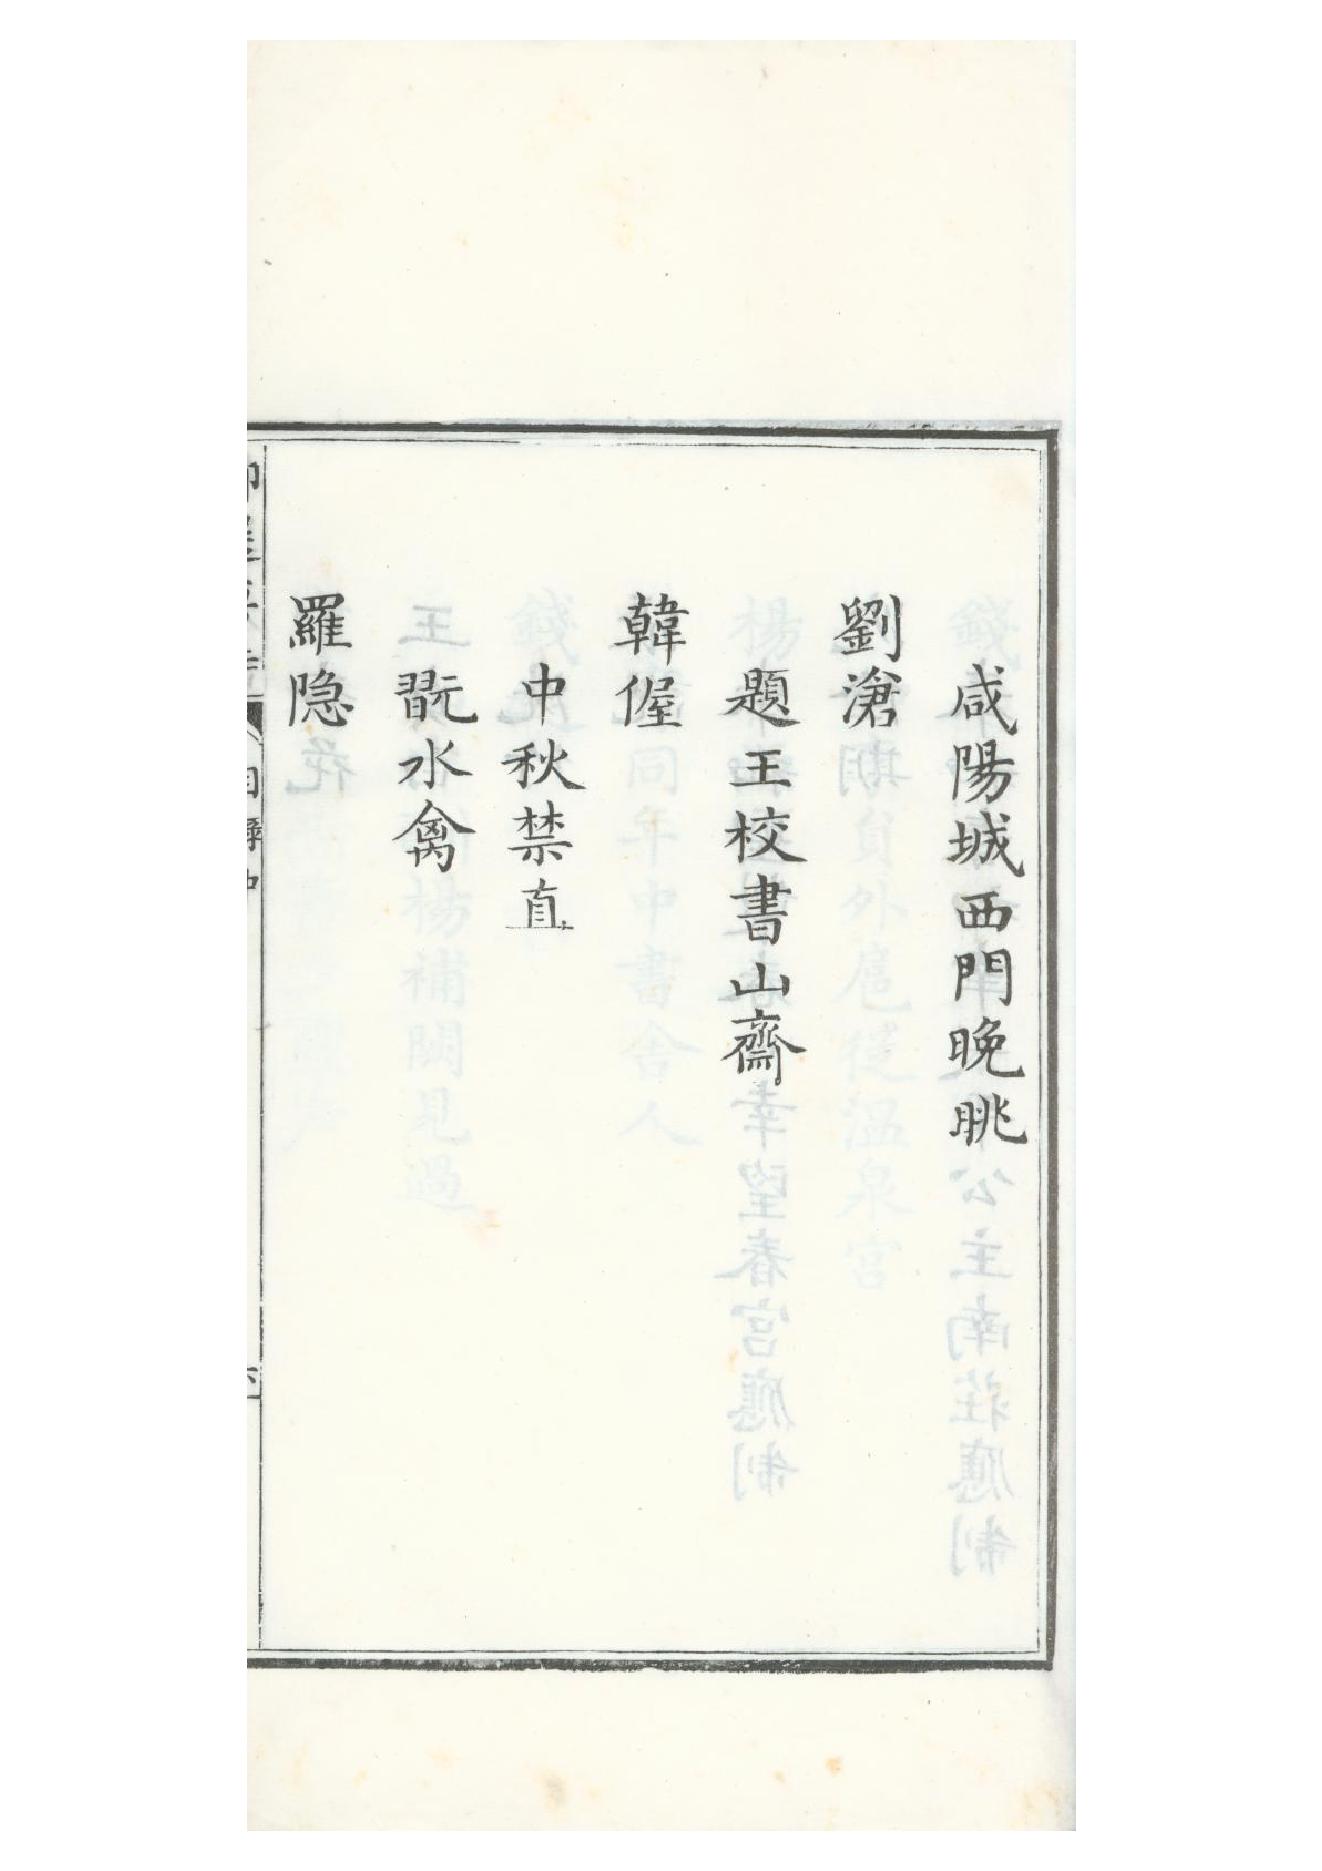 咸陽城西門晚眺
劉滄
題王校書山齋
韓偓
中秋禁直
翫水禽
羅隐